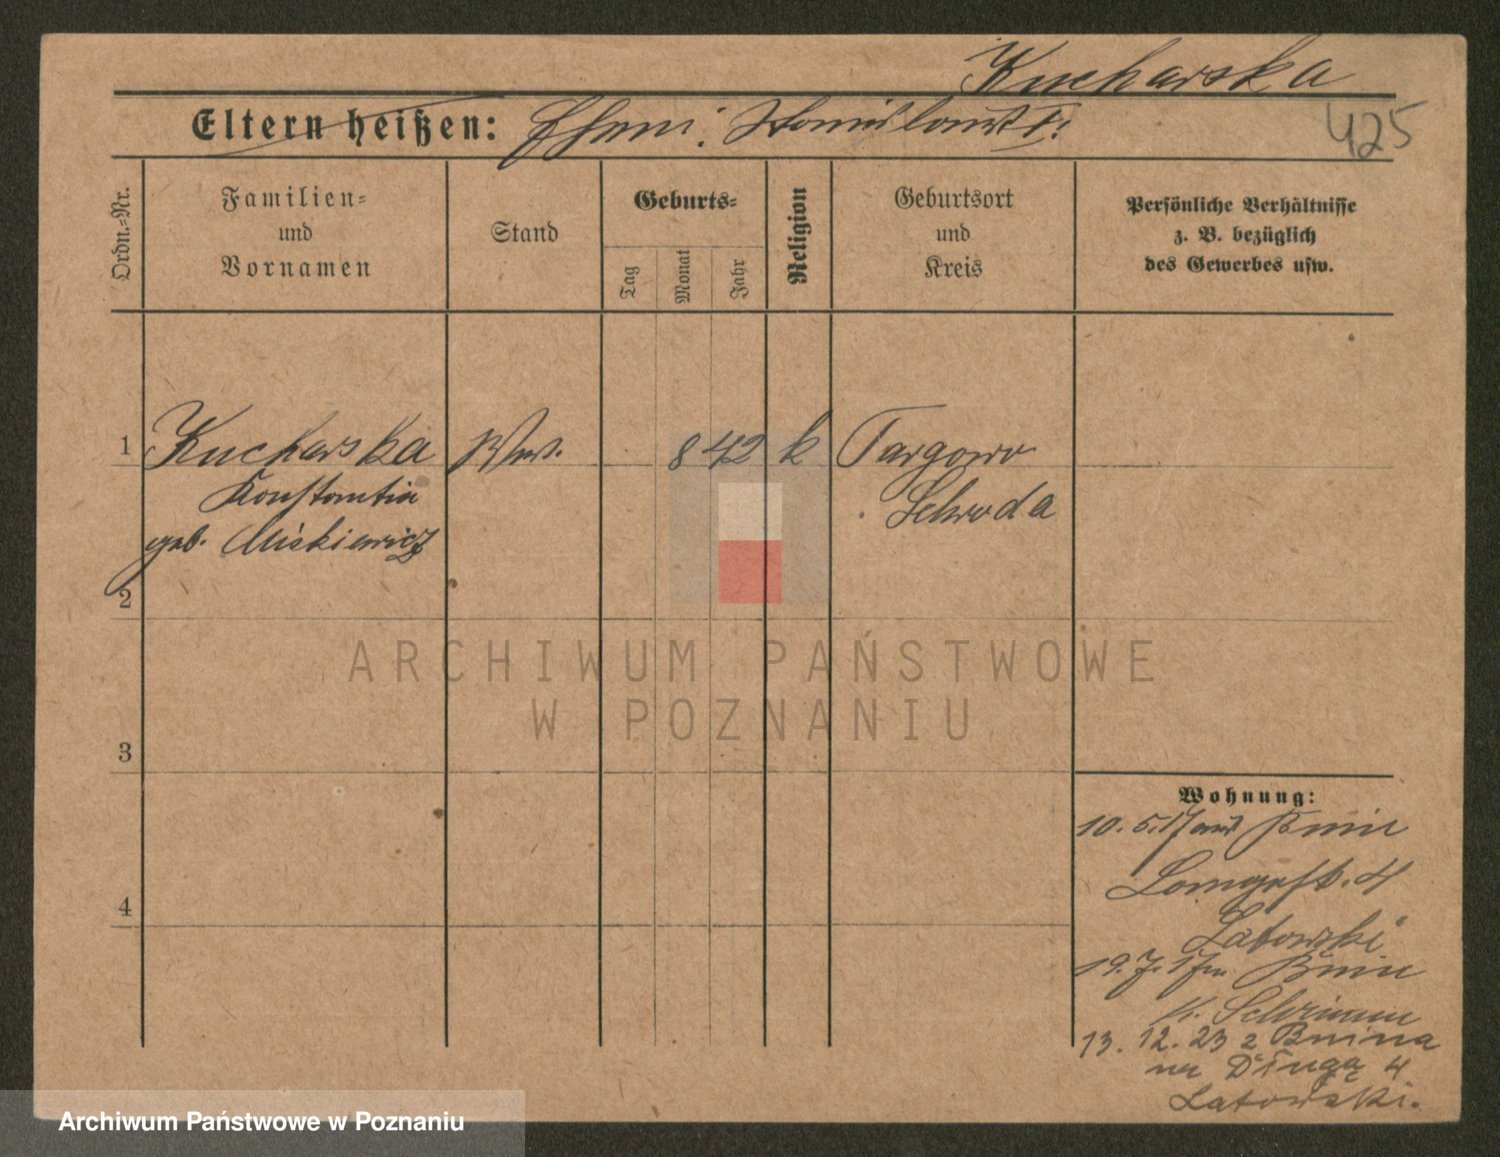 Kucharska
Eltern heißen: Ehem. Stanislaus †.
425
Ordn.=Nr.
Familien=
und
Vornamen
Stand
Geburts=
Tag
Monat
Jahr
Religion
Geburtsort
und
Kreis
Persönliche Verhältnisse
z. B. bezüglich
des Gewerbes usw.
1 Kucharska Ww. 8 42 k Targowo
Konstantia Schroda
geb. Miskiewicz
2
3
4
Wohnung:
10. 5. 17 aus Bnin
Langestr. 4
Latowski
19. 7. 17 Bnin
K. Schrimm
13. 12. 23 z Bnina
na Długą 4
Latowski.
ARCHIWUM PAŃSTWOWE
W POZNANIU
Archiwum Państwowe w Poznaniu